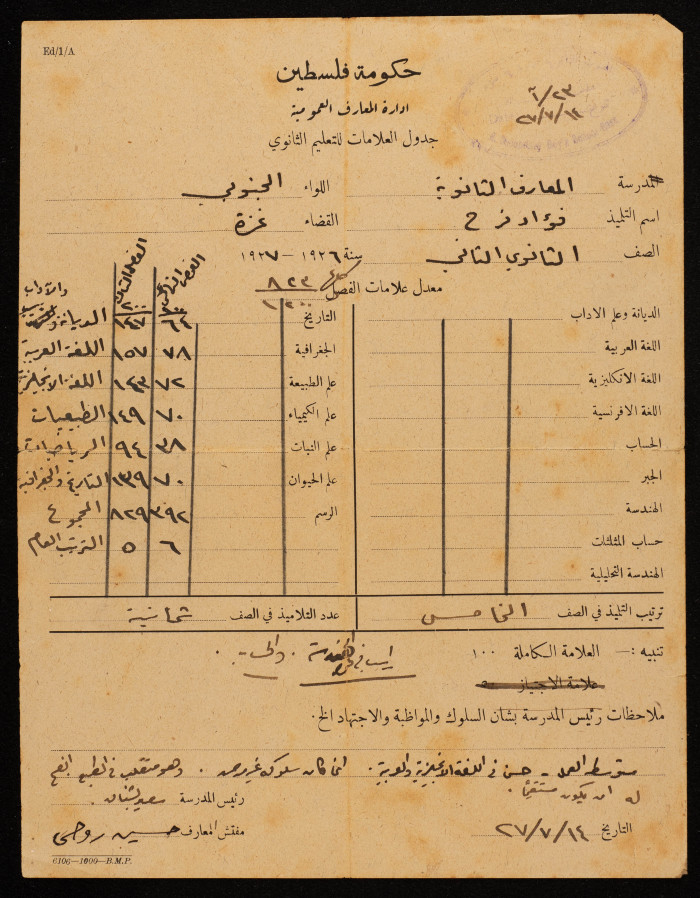 Ed/1/A
حكومة فلسطين
ادارة المعارف العمومية
جدول العلامات للتعليم الثانوي
٢٧/٧/١٤
المدرسة المعارف الثانوية اللواء الجنوبي
اسم التلميذ فؤاد فرح القضاء غزة
الصف الثانوي الثاني سنة ١٩٢٦ – ١٩٢٧
معدل علامات الفصل ٨٢٣
الديانة وعلم الاداب التاريخ ٦٤ الديانة
والآداب
اللغة العربية الجغرافية ٧٨ ١٥٧ اللغة العربية
اللغة الانكليزية علم الطبيعة ٧٢ ١٤٣ اللغة الانجليزية
اللغة الافرنسية علم الكيمياء ٧٠ ١٤٩ الطبيعيات
الحساب علم النبات ٣٨ ٩٤ الرياضيات
الجبر علم الحيوان ٧٠ ١٣٩ التاريخ والجغرافية
الهندسة الرسم ٣٩٢ ٨٢٩ المجموع
حساب المثلثات ٦ ٥ الترتيب العام
الهندسة التحليلية
ترتيب التلميذ في الصف الخامس عدد التلاميذ في الصف ثمانية
تنبيه :— العلامة الكاملة ١٠٠
علامة الاجتياز
ملاحظات رئيس المدرسة بشأن السلوك والمواظبة والاجتهاد الخ.
متوسط العمل - حسن في اللغة الانجليزية والعربية. انما كان سلوكه غير مرض. وهو متقلب في الطبع انصح
له ان يكون مستقيما.
رئيس المدرسة
التاريخ ٢٧/٧/١٤ مفتش المعارف حسين روحي
6106—1000—B.M.P.